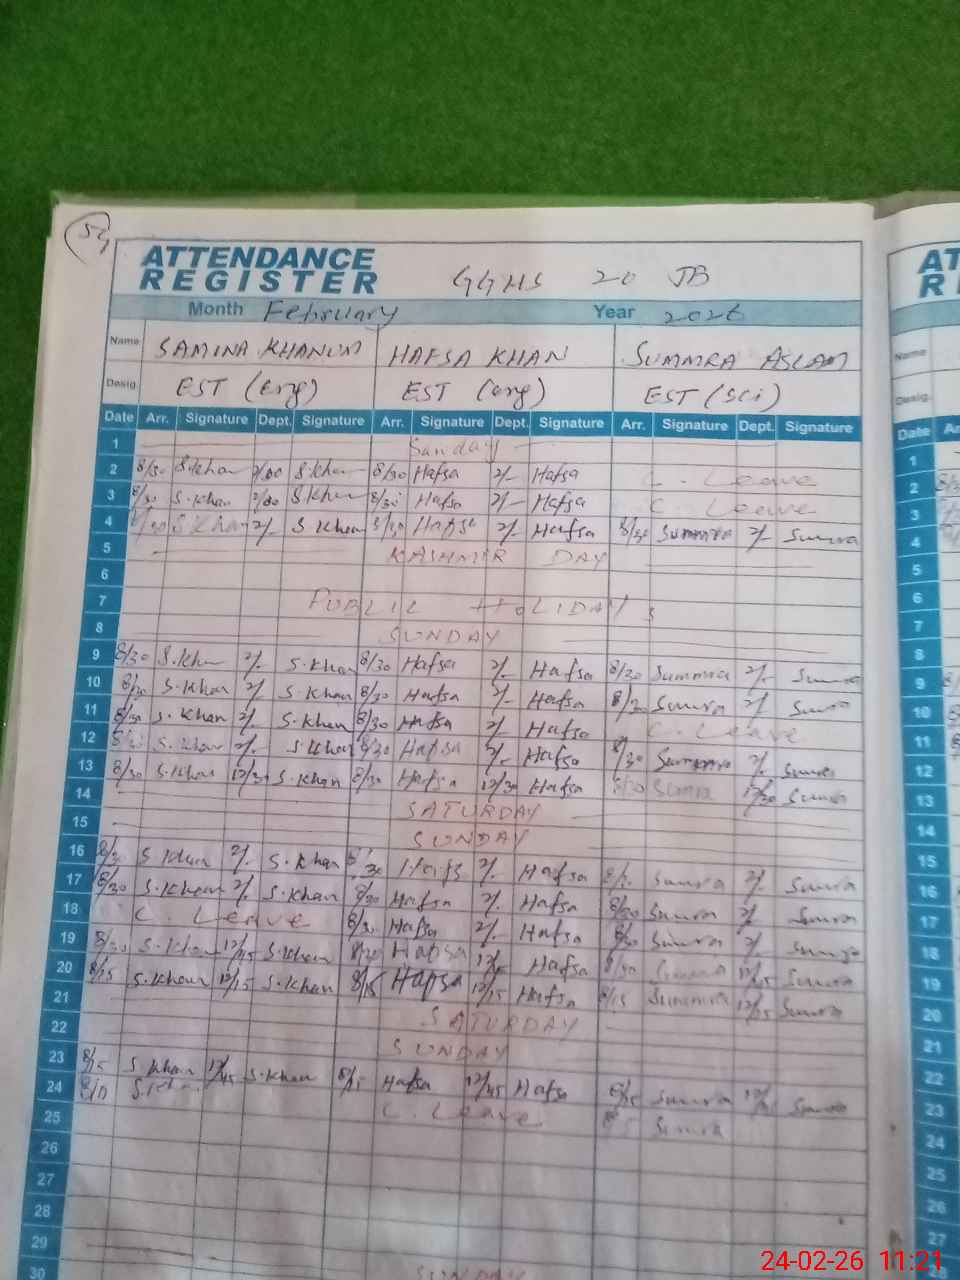 54
ATTENDANCE
REGISTER GGHS 20 JB
Month February Year 2026
Name SAMINA KHANUM HAFSA KHAN SUMMRA ASLAM
Desig. EST (Eng) EST (eng) EST (Sci)
Date Arr. Signature Dept. Signature Arr. Signature Dept. Signature Arr. Signature Dept. Signature
1 Sunday
2 8/30 S.Khan 2/00 S.Khan 8/30 Hafsa 2/- Hafsa C. Leave
3 8/30 S.Khan 2/00 S Khan 8/30 Hafsa 2/- Hafsa C. Leave
4 8/30 S Khan 2/- S Khan 8/30 Hafsa 2/- Hafsa 8/30 Summra 2/- Sumra
5 KASHMIR DAY
6
7 PUBLIC HOLIDAYS
8 SUNDAY
9 8/30 S.Khan 2/- S.Khan 8/30 Hafsa 2/- Hafsa 8/30 Summra 2/-
10 8/30 S.Khan 2/ S.Khan 8/30 Hafsa 2/- Hafsa 8/30 Sumra 2/
11 8/30 S.Khan 2/- S.Khan 8/30 Hafsa 2/- Hafsa C. Leave
12 S.Khan 2/- S.Khan 8/30 Hafsa 2/- Hafsa 8/30 2/- Sumra
13 8/30 S.Khan 12/30 S.Khan 8/30 Hafsa 12/30 Hafsa 8/30 Sumra 12/30 Sumra
14 SATURDAY
15 SUNDAY
16 8/30 S Khan 2/- S.Khan 8/30 2/- Hafsa Sumra 2/- Sumra
17 8/30 S.Khan 2/- S.Khan 8/30 Hafsa 2/- Hafsa 8/30 Sumra 2/ Sumra
18 C. Leave 8/30 Hafsa 2/- Hafsa 8/30 Sumra 2/-
19 8/30 S.Khan 12/45 S.Khan 8/30 Hafsa Hafsa 8/30 12/45 Sumra
20 8/15 S.Khan 12/15 S.Khan 8/15 Hafsa 12/15 Hafsa 8/15 Summra 12/15 Sumra
21 SATURDAY
22 SUNDAY
23 8/15 S Khan 12/45 S.Khan 8/15 Hafsa 12/45 Hafsa 8/15 Sumra Sumra
24 C. Leave Sumra
25
26
27
28
29
30 SUNDAY
AT
R
Name
Desig.
Date
1
2
3
4
5
6
7
8
9
10
11
12
13
14
15
16
17
18
19
20
21
22
23
24
25
26
27
24-02-26 11:21